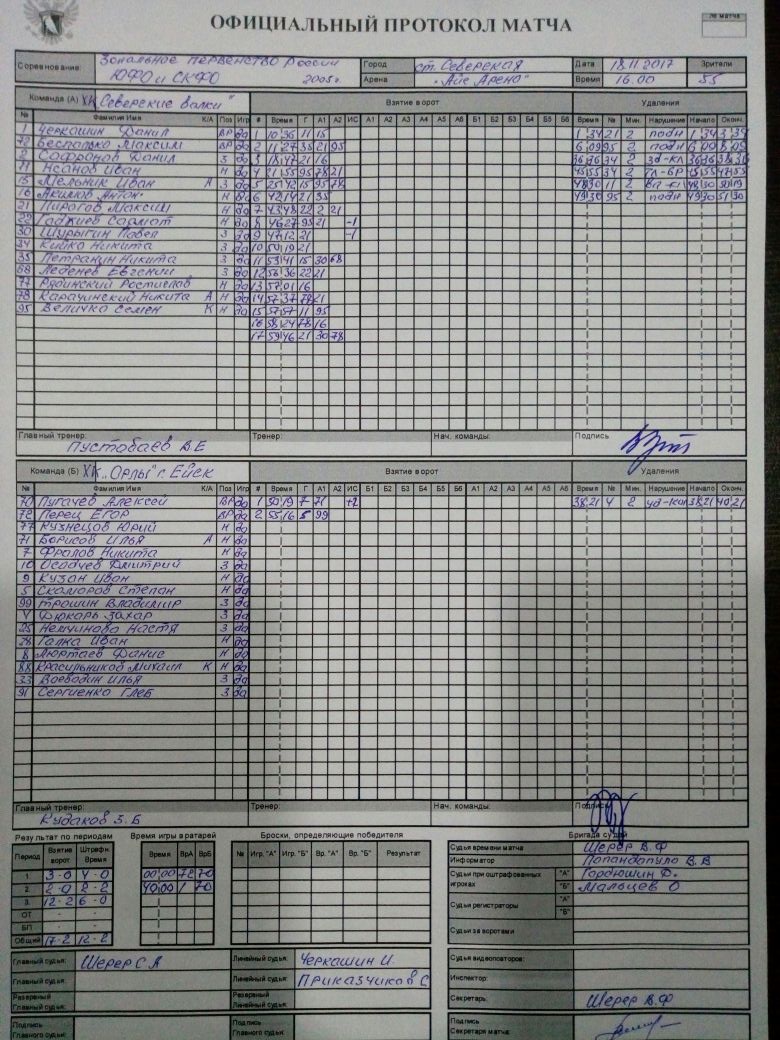 № матча
ОФИЦИАЛЬНЫЙ ПРОТОКОЛ МАТЧА
Соревнование: Зональное первенство России ЮФО и СКФО 2005г. Город ст. Северская Дата 18.11.2017 Зрители 55
Арена "Айс Арена" Время 16.00
Команда (А) ХК "Северские волки" Взятие ворот Удаления
№ Фамилия Имя К/А Поз Игр # Время Г А1 А2 ИС А1 А2 А3 А4 А5 А6 Б1 Б2 Б3 Б4 Б5 Б6 Время № Мин. Нарушение Начало Оконч.
1 Черкашин Данил ВР да 1 10 36 11 15 1 34 21 2 подн 1 34 3 34
72 Беспалько Максим ВР да 2 11 27 35 21 95 6 09 95 2 подн 6 09 8 09
2 Сафронов Данил З да 3 18 47 21 16 36 36 34 2 зд-кл 36 36 38 36
11 Исанов Иван Н да 4 21 55 95 78 21 45 55 34 2 45 55 47 55
15 Мельник Иван А З да 5 25 42 15 95 78 48 30 11 2 48 30
16 Акимов Антон Н да 6 42 14 21 35 49 30 95 2 подн 49 30 51 30
21 Пирогов Максим Н да 7 43 48 22 2 21
22 Гаджиев Сармат Н да 8 46 27 95 21 -1
30 Шурыгин Павел З да 9 47 12 21 -1
34 Кийко Никита З да 10 50 19 21
35 Петранин Никита З да 11 53 41 15 30 68
68 Леденев Евгений З да 12 56 36 22 21
77 Рядинский Ростислав Н да 13 57 01 16
78 Карачинский Никита А Н да 14 57 37 78 21
95 Величко Семен К Н да 15 57 57 11 95
16 58 24 78 16
17 59 46 21 30 78
Главный тренер: Пустобаев В Е Тренер: Нач. команды: Подпись
Команда (Б) ХК "Орлы" г. Ейск Взятие ворот Удаления
№ Фамилия Имя К/А Поз Игр # Время Г А1 А2 ИС Б1 Б2 Б3 Б4 Б5 Б6 А1 А2 А3 А4 А5 А6 Время № Мин. Нарушение Начало Оконч.
70 Пугачев Алексей ВР да 1 50 19 7 71 +2 38 21 4 2 38 21 40 21
72 Перец Егор ВР да 2 55 16 5 99
77 Кузнецов Юрий Н да
71 Борисов Илья А Н да
7 Фралов Никита Н да
10 Осадчев Дмитрий З да
9 Кузан Иван Н да
5 Скаморов Степан Н да
99 Трошин Владимир З да
4 Фюкарь Захар З да
25 Немчинова Настя З да
28 Галка Иван Н да
8 Люртаев Фание Н да
88 Красильников Михаил К Н да
33 Воеводин Илья З да
91 Сергиенко Глеб З да
Главный тренер: Кудаков З. Б Тренер: Нач. команды: Подпись
Результат по периодам Время игры вратарей Броски, определяющие победителя Бригада судей
Период Взятие ворот Штрафн. Время Время ВрА ВрБ № Игр. "А" Игр. "Б" Вр. "А" Вр. "Б" Результат
1 3-0 4-0 00 00 72 70
2. 2-0 2-2 40 00 1 70
3. 12-2 6-0
ОТ - -
БП - -
Общий 17-2 12-2
Судья времени матча Шерер В.Ф
Информатор Попандопуло В.В
Судьи при оштрафованных игроках "А" Гордюшин Д.
"Б" Мальцев О
Судьи регистраторы "А"
"В"
Судьи за воротами
Главный судья: Шерер С А Линейный судья: Черкашин И. Судья видеоповторов:
Главный судья: Линейный судья: Приказчиков С Инспектор:
Резервный Главный судья: Резервный Линейный судья: Секретарь: Шерер В.Ф
Подпись Главного судьи: Подпись Главного судьи: Подпись Секретаря матча: